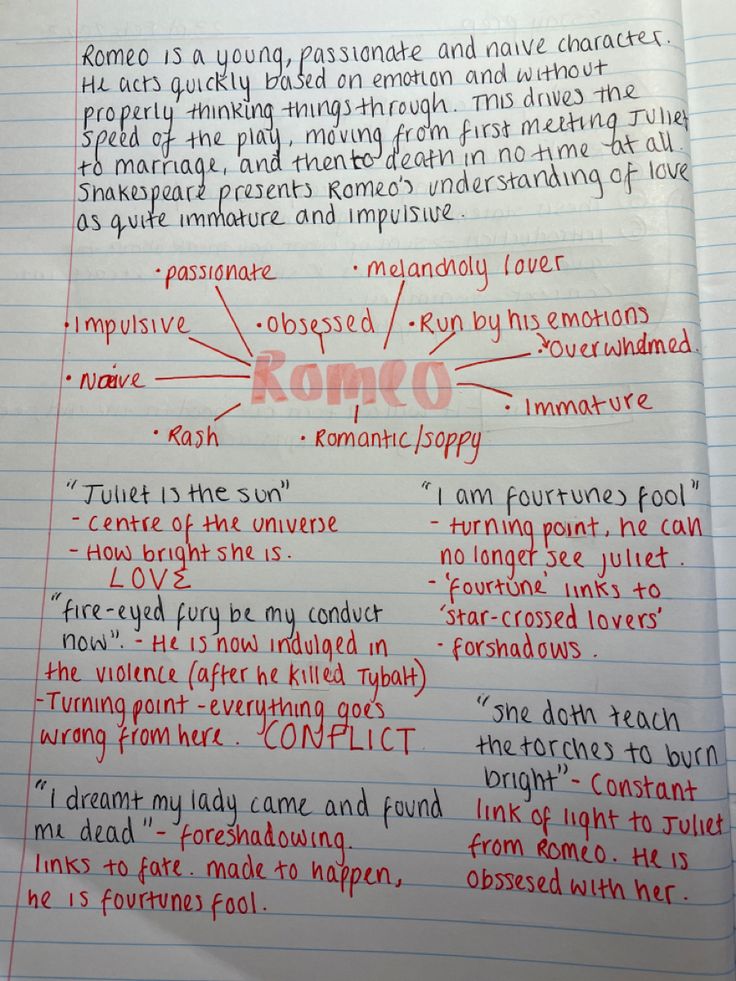 Romeo is a young, passionate and naive character.
He acts quickly based on emotion and without
properly thinking things through. This drives the
speed of the play, moving from first meeting Juliet
to marriage, and then to death in no time at all.
Shakespeare presents Romeo's understanding of love
as quite immature and impulsive.
• passionate
• melancholy lover
• Impulsive
• Obsessed
• Run by his emotions
• Overwhelmed.
• Naive
Romeo
• Immature
• Rash
• Romantic/soppy
"Juliet is the sun"
- Centre of the universe
- How bright she is.
LOVE
"I am fourtunes fool"
- turning point, he can
no longer see juliet.
- 'fourtune' links to
'star-crossed lovers'
- forshadows.
"fire-eyed fury be my conduct
now". - He is now indulged in
the violence (after he killed Tybalt)
- Turning point - everything goes
wrong from here. CONFLICT
"she doth teach
the torches to burn
bright" - Constant
link of light to Juliet
from Romeo. He is
obssesed with her.
"I dreamt my lady came and found
me dead" - foreshadowing.
links to fate. made to happen,
he is fourtunes fool.